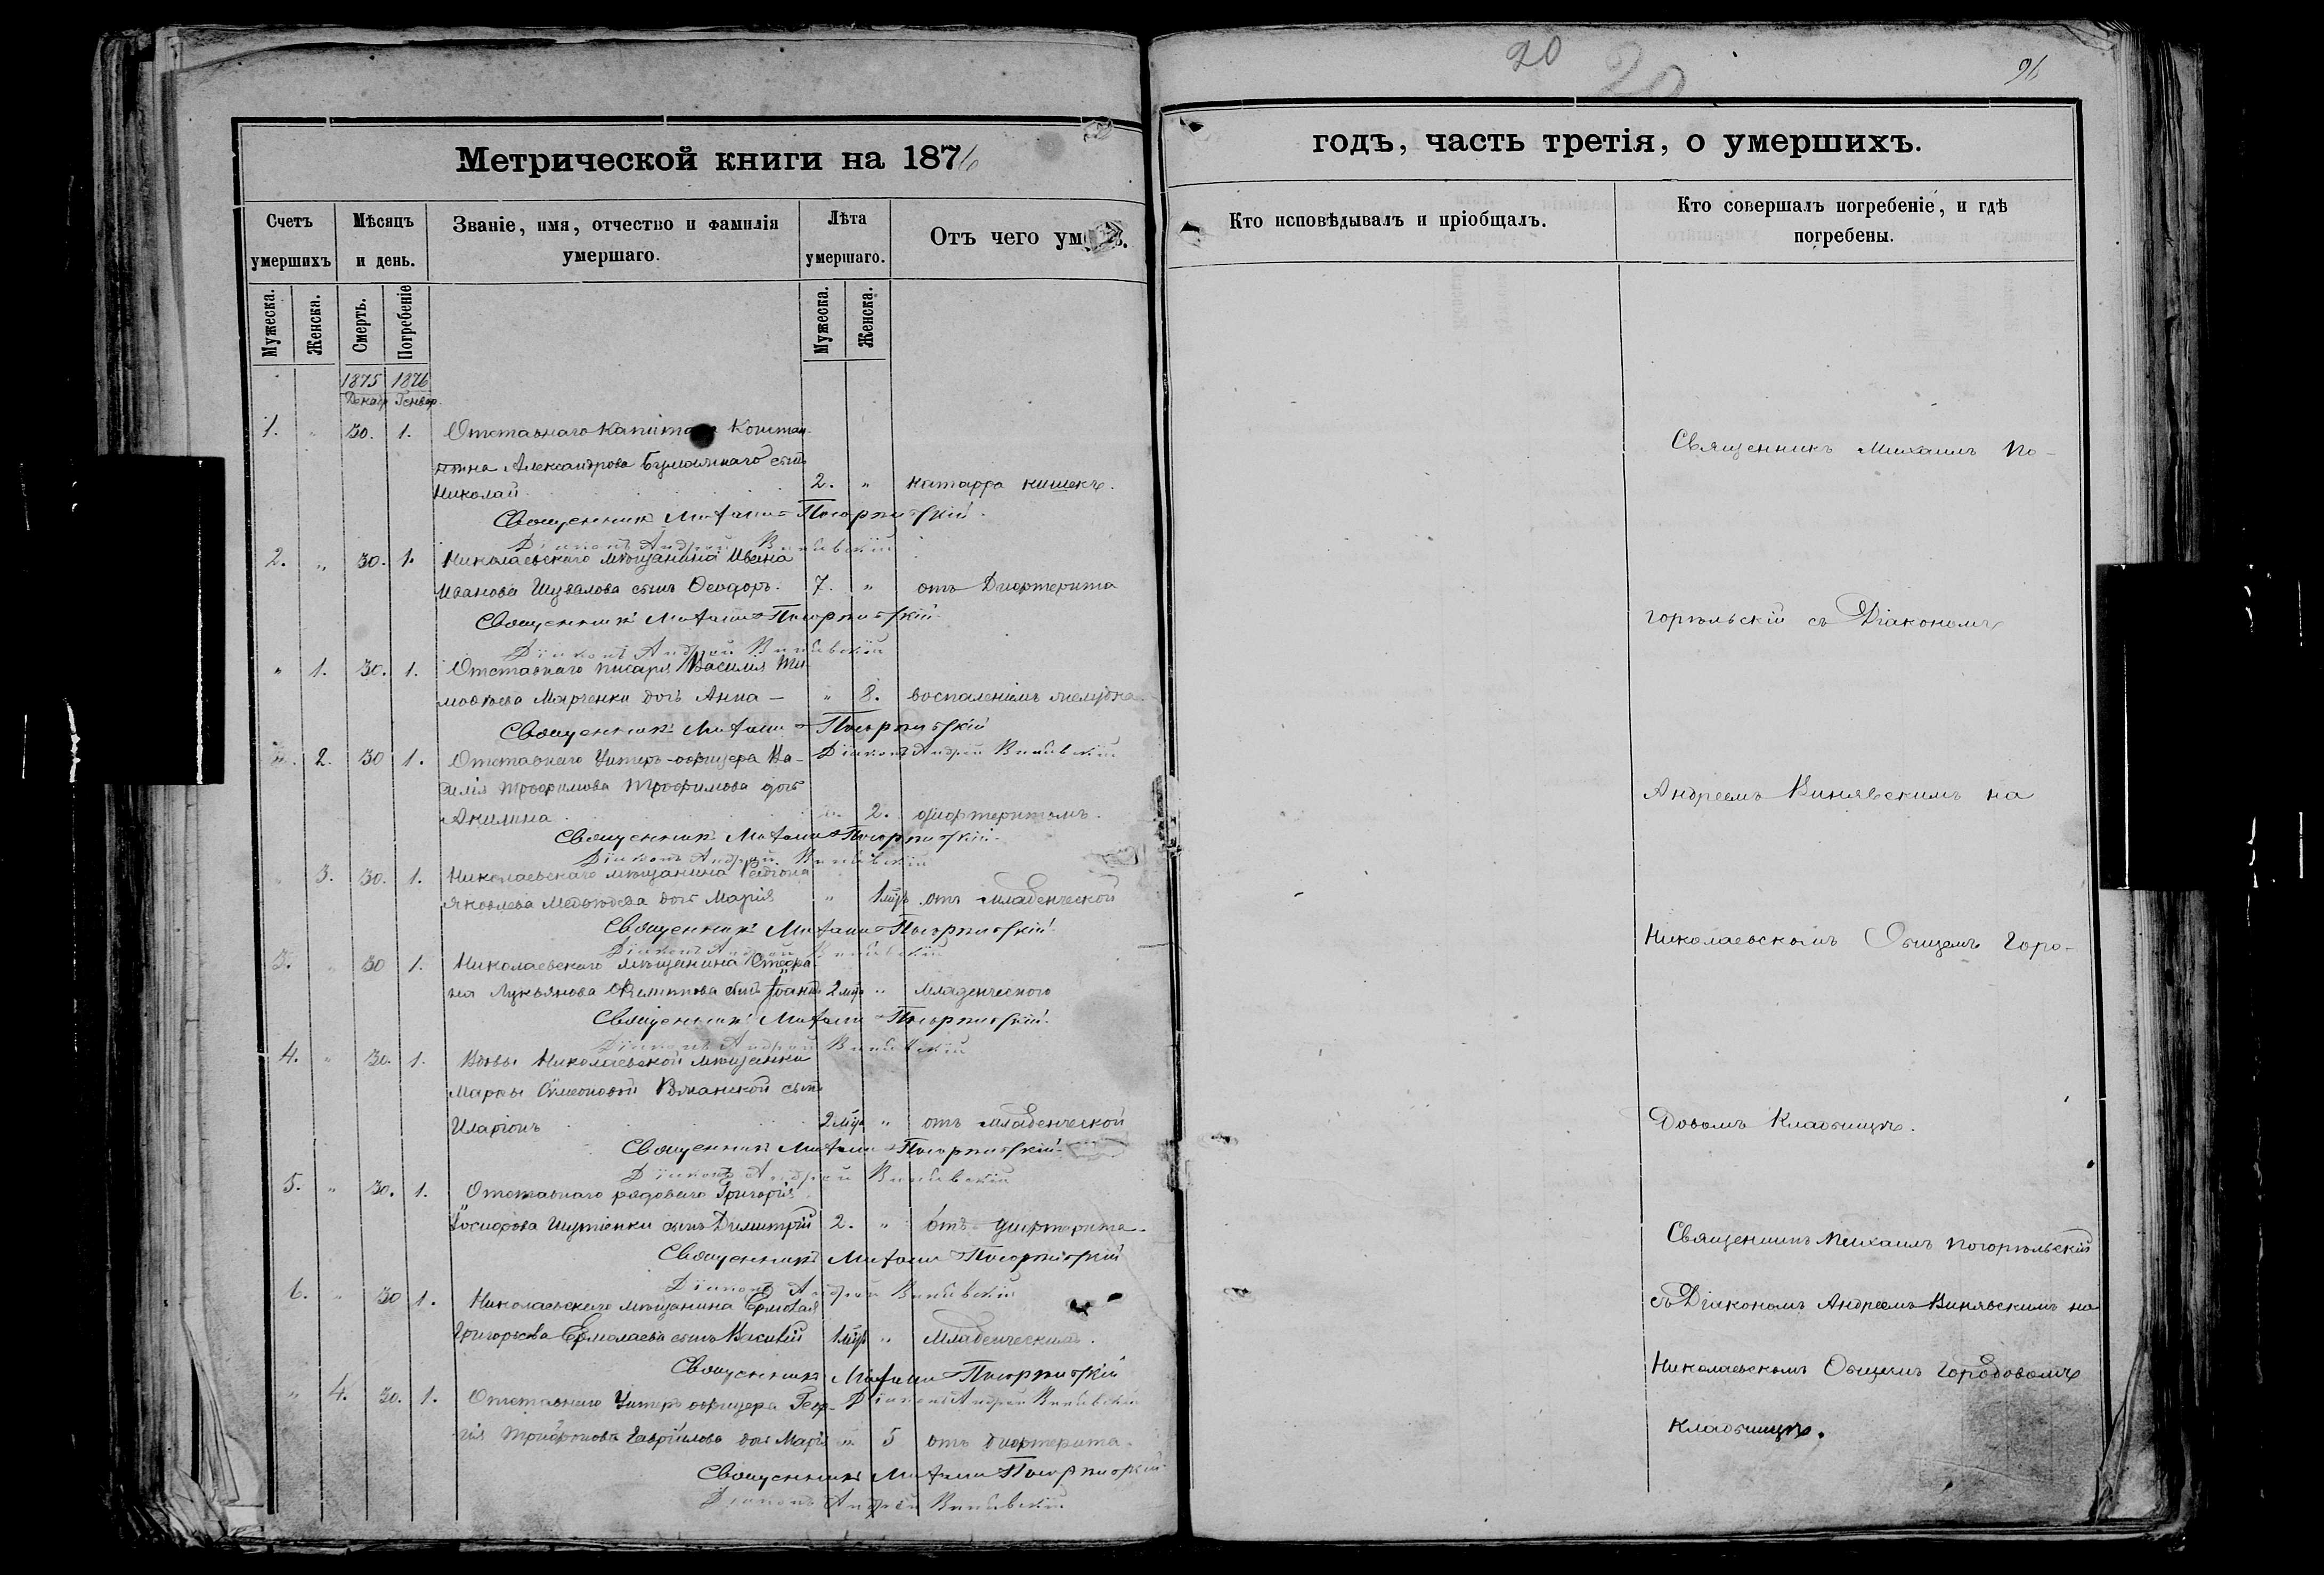 20
20
96
Метрической книги на 1876
годъ, часть третія, о умершихъ.
Счетъ умершихъ
Мѣсяцъ и день.
Званіе, имя, отчество и фамилія умершаго.
Лѣта умершаго.
Отъ чего
Кто исповѣдывалъ и пріобщалъ.
Кто совершалъ погребеніе, и гдѣ погребены.
Мужеска.
Женска.
Смерть.
Погребеніе
Мужеска.
Женска.
1875 1876
Декабр Генвар.
1. " 30. 1. Отставнаго Капитана Констан-
тина Александрова сынъ
Николай 2. " катарра кишекъ.
Священникъ Михаилъ Погорѣльскій
Діаконъ Андрей Винявскій
2. " 30. 1. Николаевскаго мѣщанина Ивана
Иванова Шувалова сынъ Ѳеодоръ. 7. " отъ Дифтерита
Священникъ Михаилъ Погорѣльскій
Діаконъ Андрей Винявскій
" 1. 30. 1. Отставнаго писаря Василія Ти-
моѳѣева Марченки дочь Анна — " 8. воспаленіемъ желудка
Священникъ Михаилъ Погорѣльскій
" 2. 30 1. Отставнаго Унтеръ-офицера Ва-
Діаконъ Андрей Винявскій
силія Трофимова Трофимова дочь
Акилина " 2. дифтеритомъ.
Священникъ Михаилъ Погорѣльскій
Діаконъ Андрей Винявскій
" 3. 30. 1. Николаевскаго мѣщанина Родіона
Яковлева дочь Марія " 1 мѣс отъ младенческой
Священникъ Михаилъ Погорѣльскій
Діаконъ Андрей Винявскій
3. " 30 1. Николаевскаго мѣщанина Стефа-
на Лукьянова сынъ Іоаннъ 2 мѣс " Младенческого
Священникъ Михаилъ Погорѣльскій
Діаконъ Андрей Винявскій
4. " 30. 1. Вдовы Николаевской мѣщанки
Марфы Сѵмеоновой сынъ
Иларіонъ 2 мѣс " отъ младенческой
Священникъ Михаилъ Погорѣльскій
Діаконъ Андрей Винявскій
5. " 30. 1. Отставнаго рядоваго Григорія
Іосифова сынъ Димитрій 2. " отъ дифтерита.
Священникъ Михаилъ Погорѣльскій
Діаконъ Андрей Винявскій
6. " 30 1. Николаевскаго мѣщанина Ермолая
Григорьева Ермолаева сынъ Василій 1 мѣс " Младенческимъ.
Священникъ Михаилъ Погорѣльскій
" 4. 30. 1. Отставнаго Унтеръ офицера Геор-
Діаконъ Андрей Винявскій
гія Гавріилова дочь Марія " 5 отъ дифтерита.
Священникъ Михаилъ Погорѣльскій
Діаконъ Андрей Винявскій
Священникъ Михаилъ По-
горѣльскій съ Діакономъ
Андреемъ Винявскимъ на
Николаевскомъ Общемъ Горо-
довомъ Кладбищѣ.
Священникъ Михаилъ Погорѣльскій
съ Діакономъ Андреемъ Винявскимъ на
Николаевскомъ Общемъ Городовомъ
Кладбищѣ.